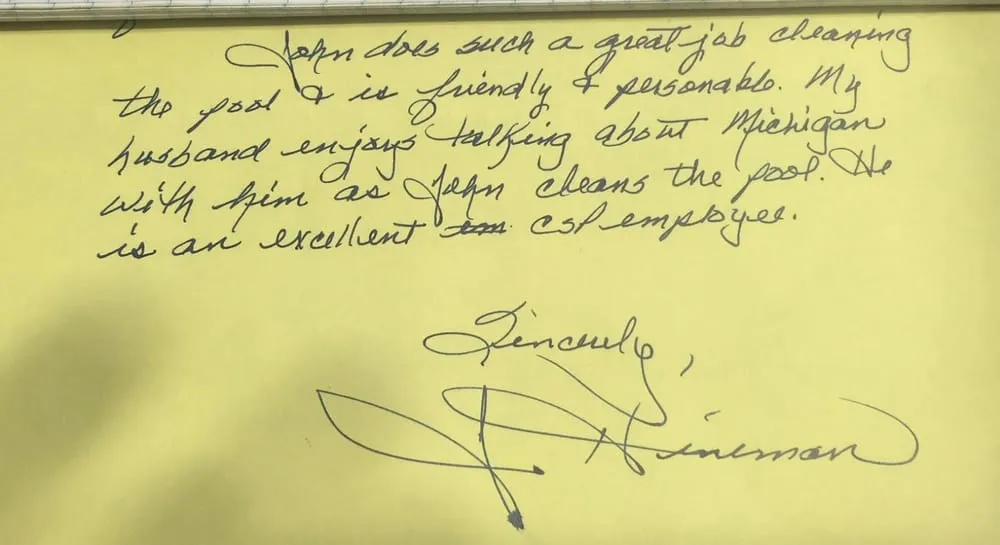 John does such a great job cleaning
the pool & is friendly & personable. My
husband enjoys talking about Michigan
with him as John cleans the pool. He
is an excellent em CSP employee.
Sincerely,
J. Hineman